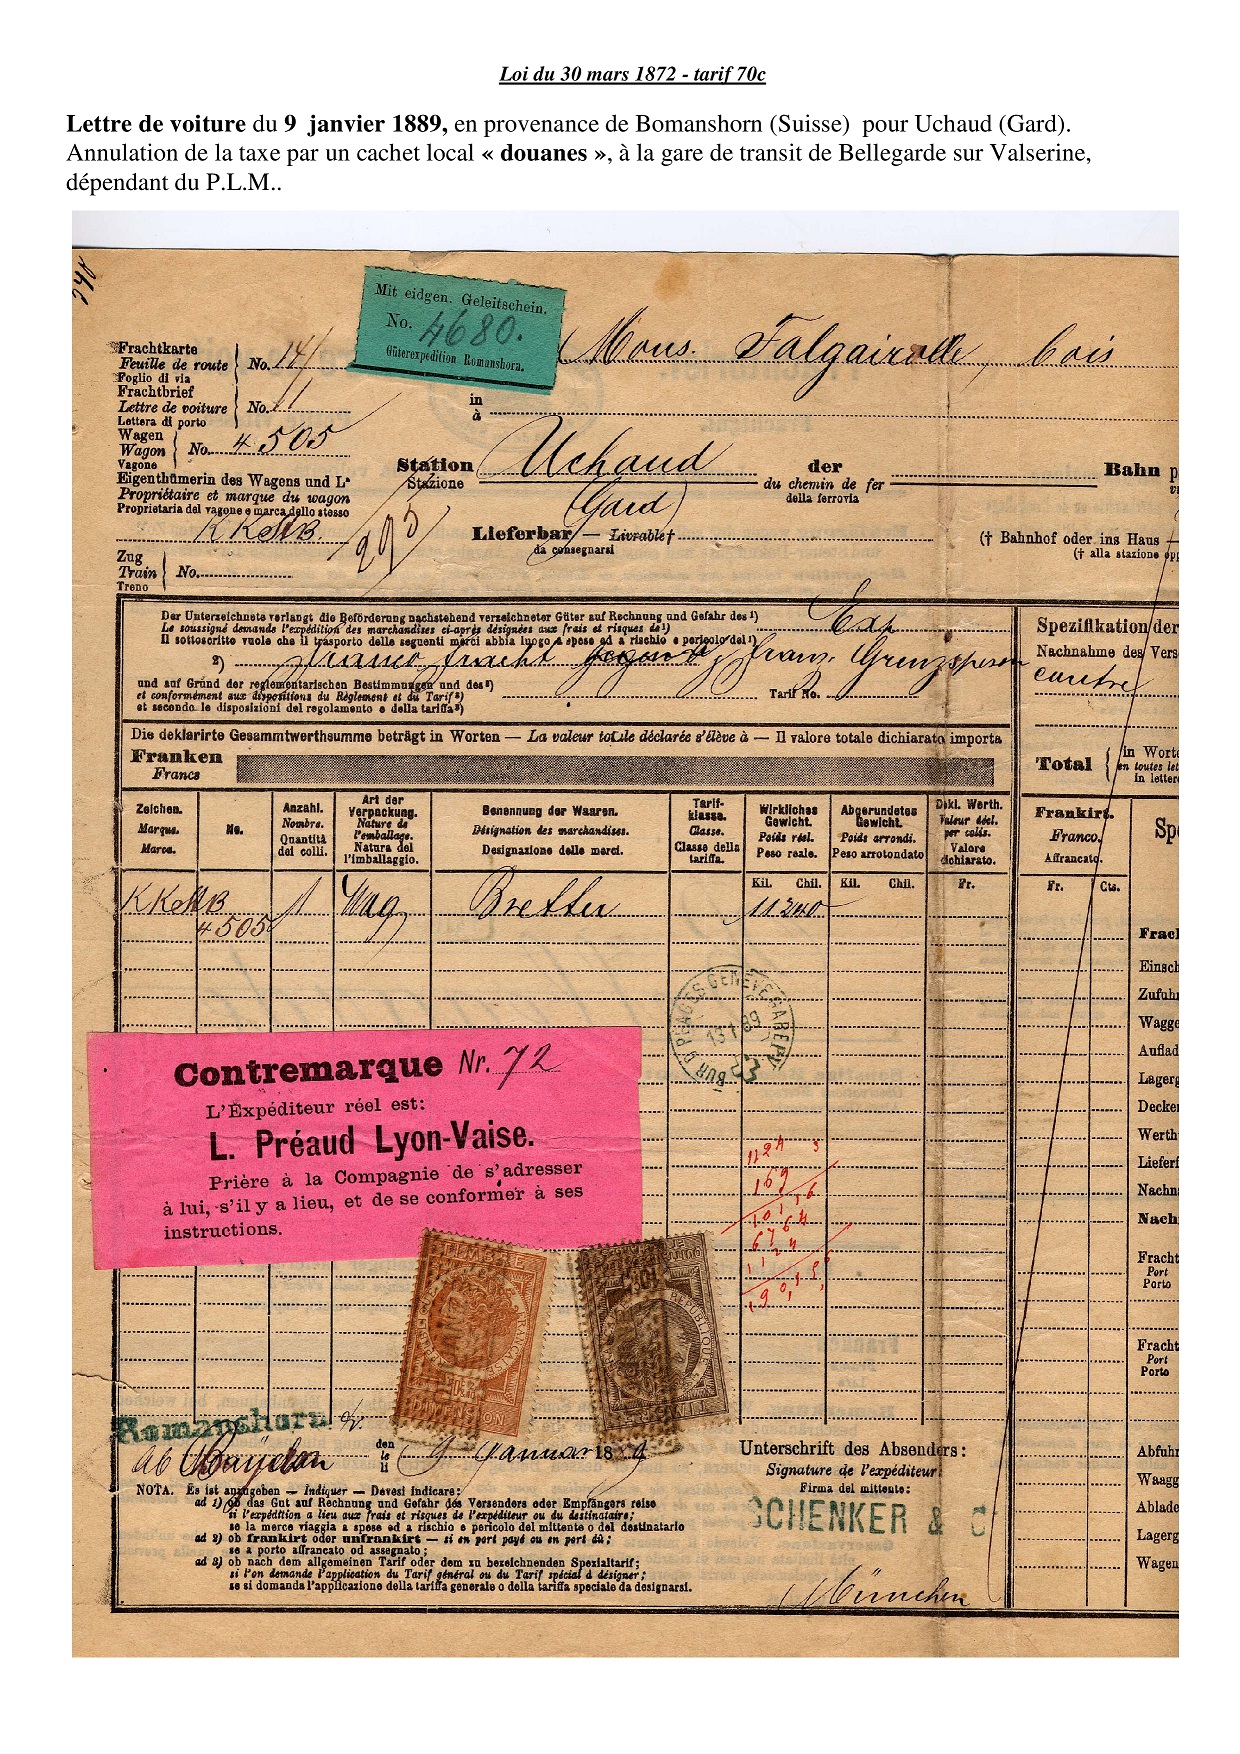 Loi du 30 mars 1872 - tarif 70c
Lettre de voiture du 9 janvier 1889, en provenance de Bomanshorn (Suisse) pour Uchaud (Gard).
Annulation de la taxe par un cachet local « douanes », à la gare de transit de Bellegarde sur Valserine,
dépendant du P.L.M..
Mit eidgen. Geleitschein.
No. 4680.
Güterexpedition Romanshorn.
Mons. Falgairolle, bois
Frachtkarte
Feuille de route No. 141
Foglio di via
Frachtbrief
Lettre de voiture No. 11
Lettera di porto
in
à
Wagen
Wagon No. 4505
Vagone
Eigenthümerin des Wagens und Lª
Propriétaire et marque du wagon
Proprietaria del vagone e marca dello stesso
Station Uchaud der Bahn
Stazione du chemin de fer
della ferrovia
(Gard)
Lieferbar — Livrable†
da consegnarsi
(† Bahnhof oder ins Haus
(† alla stazione
Zug
Train No.
Treno
Der Unterzeichnete verlangt die Beförderung nachstehend verzeichneter Güter auf Rechnung und Gefahr des ¹)
Le soussigné demande l'expédition des marchandises ci-après désignées aux frais et risques de ¹)
Il sottoscritto vuole che il trasporto delle seguenti merci abbia luogo a spese ed a rischio e pericolo del ¹)
2) franz.
und auf Grund der reglementarischen Bestimmungen und des ³)
et conformément aux dispositions du Règlement et du Tarif ³) Tarif No.
et secondo le disposizioni del regolamento e della tariffa ³)
Spezifikation der
Nachnahme des Vers
Die deklarirte Gesammtwerthsumme beträgt in Worten — La valeur totale déclarée s'élève à — Il valore totale dichiarato importa
Franken
Francs
Total in Worte
en toutes let
in lettere
Zeichen. Marque. Marca.
No.
Anzahl. Nombre. Quantità dei colli.
Art der Verpackung. Nature de l'emballage. Natura del l'imballaggio.
Benennung der Waaren. Désignation des marchandises. Designazione delle merci.
Tarif-klasse. Classe. Classe della tariffa.
Wirkliches Gewicht. Poids réel. Peso reale.
Abgerundetes Gewicht. Poids arrondi. Peso arrotondato
Dekl. Werth. Valeur décl. per colis. Valore dichiarato.
Frankirt. Franco. Affrancato.
Kil. Chil. Kil. Chil. Fr. Fr. Cts.
4505 1 Wag Bretter 11240
Frach
Einsch
Zufuhr
Wagge
Auflad
Lagerg
Decker
Werth
Lieferf
Nachn
Nach
Fracht
Port
Porto
Fracht
Port
Porto
Abfuhr
Waagg
Ablade
Lagerg
Wagen
13 I 89
Contremarque Nr. 72
L'Expéditeur réel est:
L. Préaud Lyon-Vaise.
Prière à la Compagnie de s'adresser
à lui, s'il y a lieu, et de se conformer à ses
instructions.
TIMBRE
DIMENSION
RÉPUBLIQUE
Romanshorn
ab
den
le
li
9 Januar 1889
Unterschrift des Absenders:
Signature de l'expéditeur
Firma del mittente:
SCHENKER & C
München
NOTA. Es ist anzugeben — Indiquer — Devesi indicare:
ad 1) ob das Gut auf Rechnung und Gefahr des Versenders oder Empfängers reise
si l'expédition a lieu aux frais et risques de l'expéditeur ou du destinataire;
se la merce viaggia a spese ed a rischio e pericolo del mittente o del destinatario
ad 2) ob frankirt oder unfrankirt — si en port payé ou en port dû;
se a porto affrancato od assegnato;
ad 3) ob nach dem allgemeinen Tarif oder dem zu bezeichnenden Spezialtarif;
si l'on demande l'application du Tarif général ou du Tarif spécial à désigner;
se si domanda l'applicazione della tariffa generale o della tariffa speciale da designarsi.